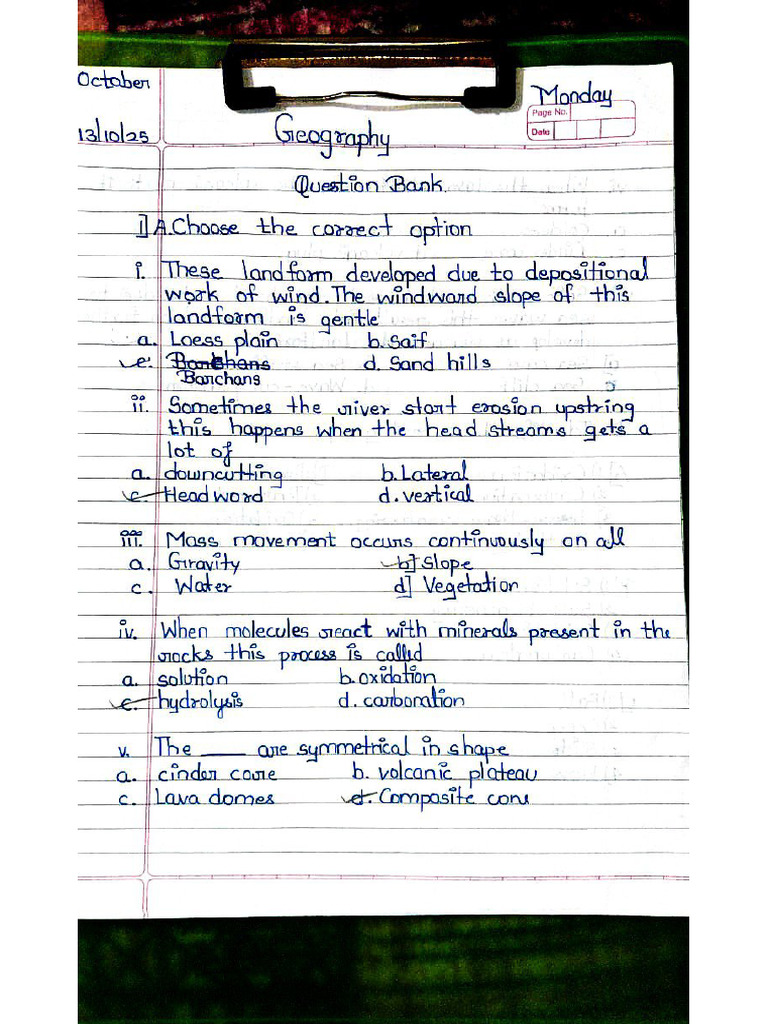 October
Monday
Page No.
Date
13/10/25
Geography
Question Bank.
1] A. Choose the correct option
i. These landform developed due to depositional
work of wind. The windward slope of this
landform is gentle
a. Loess plain b. Saif
c. Barchans d. Sand hills
Barchans
ii. Sometimes the river start erosion upstring
this happens when the head streams gets a
lot of
a. downcutting b. Lateral
c. Headword d. vertical
iii. Mass movement occurs continuously on all
a. Gravity b] Slope
c. Water d] Vegetation
iv. When molecules react with minerals present in the
rocks this process is called
a. solution b. oxidation
c. hydrolysis d. carbonation
v. The ____ are symmetrical in shape
a. cinder core b. volcanic plateau
c. Lava domes d. Composite cone